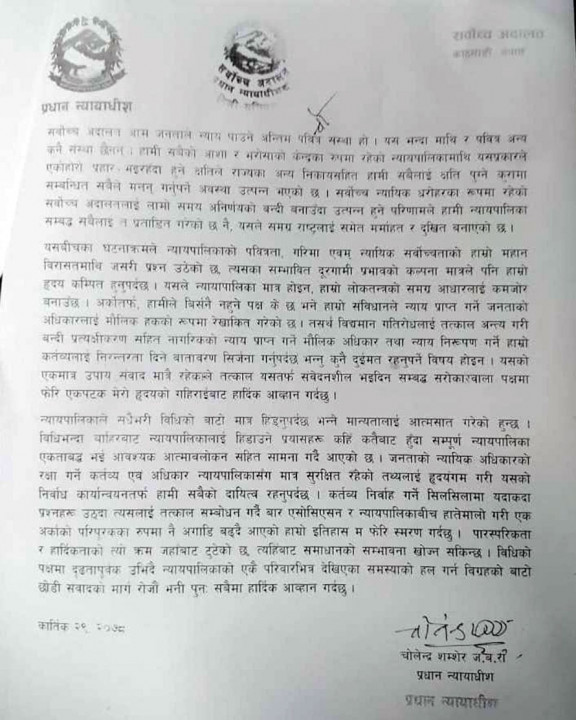 सर्वोच्च अदालत
काठमाडौं नेपाल
सर्वोच्च अदालत
प्रधान न्यायाधीश
सर्वोच्च अदालत आम जनताले न्याय पाउने अन्तिम पवित्र संस्था हो । यस भन्दा माथि र पवित्र अन्य
कुनै संस्था छैनन् । हामी सबैको आशा र भरोसाको केन्द्रका रुपमा रहेको न्यायपालिकामाथि यसप्रकारले
एकोहोरो प्रहार भइरहँदा हुने क्षतिले राज्यका अन्य निकायसहित हामी सबैलाई क्षति पुग्ने कुरामा
सम्बन्धित सबैले मनन् गर्नुपर्ने अवस्था उत्पन्न भएको छ । सर्वोच्च न्यायिक धरोहरका रुपमा रहेको
सर्वोच्च अदालतलाई लामो समय अनिर्णयको बन्दी बनाउँदा उत्पन्न हुने परिणामले हामी न्यायपालिका
सम्बद्ध सबैलाई त प्रताडित गरेको छ नै, यसले समग्र राष्ट्रलाई समेत मर्माहत र दुखित बनाएको छ ।
यसबीचका घटनाक्रमले न्यायपालिकाको पवित्रता, गरिमा एवम् न्यायिक सर्वोच्चताको हाम्रो महान
विरासतमाथि जसरी प्रश्न उठेको छ, त्यसका सम्भावित दूरगामी प्रभावको कल्पना मात्रले पनि हाम्रो
हृदय कम्पित हुनुपर्दछ । यसले न्यायापालिका मात्र होइन, हाम्रो लोकतन्त्रको समग्र आधारलाई कमजोर
बनाउँछ । अर्कोतर्फ, हामीले बिर्सनै नहुने पक्ष के छ भने हाम्रो संविधानले न्याय प्राप्त गर्ने जनताको
अधिकारलाई मौलिक हकको रूपमा रेखांकित गरेको छ । तसर्थ विद्यमान गतिरोधलाई तत्काल अन्त्य गरी
बन्दी प्रत्यक्षीकरण सहित नागरिकको न्याय प्राप्त गर्ने मौलिक अधिकार तथा न्याय निरूपण गर्ने हाम्रो
कर्तव्यलाई निरन्तरता दिने वातावरण सिर्जना गर्नुपर्दछ भन्नु कुनै दुईमत रहनुपर्ने विषय होइन । यसको
एकमात्र उपाय संवाद मात्रै रहेकाले तत्काल यसतर्फ संवेदनशील भइदिन सम्बद्ध सरोकारवाला पक्षमा
फेरि एकपटक मेरो हृदयको गहिराईबाट हार्दिक आव्हान गर्दछु ।
न्यायपालिकाले सधैंभरी विधिको बाटो मात्र हिड्नुपर्दछ भन्ने मान्यतालाई आत्मसात गरेको हुन्छ ।
विधिभन्दा बाहिरबाट न्यायपालिकालाई हिडाउने प्रयासहरू कहिं कतैबाट हुँदा सम्पूर्ण न्यायपालिका
एकताबद्ध भई आवश्यक आत्मावलोकन सहित सामना गर्दै आएको छ । जनताको न्यायिक अधिकारको
रक्षा गर्ने कर्तव्य एवं अधिकार न्यायपालिकासंग मात्र सुरक्षित रहेको तथ्यलाई हृदयंगम गरी यसको
निर्वाध कार्यान्वयनतर्फ हामी सबैको दायित्व रहनुपर्दछ । कर्तव्य निर्वाह गर्ने सिलसिलामा यदाकदा
प्रश्नहरू उठ्दा त्यसलाई तत्काल सम्बोधन गर्दै बार एसोसिएसन र न्यायपालिकाबीच हातेमालो गरी एक
अर्काको परिपुरकका रूपमा नै अगाडि बढ्दै आएको हाम्रो इतिहास म फेरि स्मरण गर्दछु । पारस्परिकता
र हार्दिकताको त्यो क्रम जहाँबाट टुटेको छ, त्यहिंबाट समाधानको सम्भावना खोज्न सकिन्छ । विधिको
पक्षमा दृढतापूर्वक उभिदै न्यायपालिकाको एकै परिवारभित्र देखिएका समस्याको हल गर्न विग्रहको बाटो
छोडी संवादको मार्ग रोजौं भनी पुनः सबैमा हार्दिक आव्हान गर्दछु ।
कार्तिक २९, २०७८
चोलेन्द्र शम्शेर ज.ब.रा
प्रधान न्यायाधीश
प्रधान न्यायाधीश